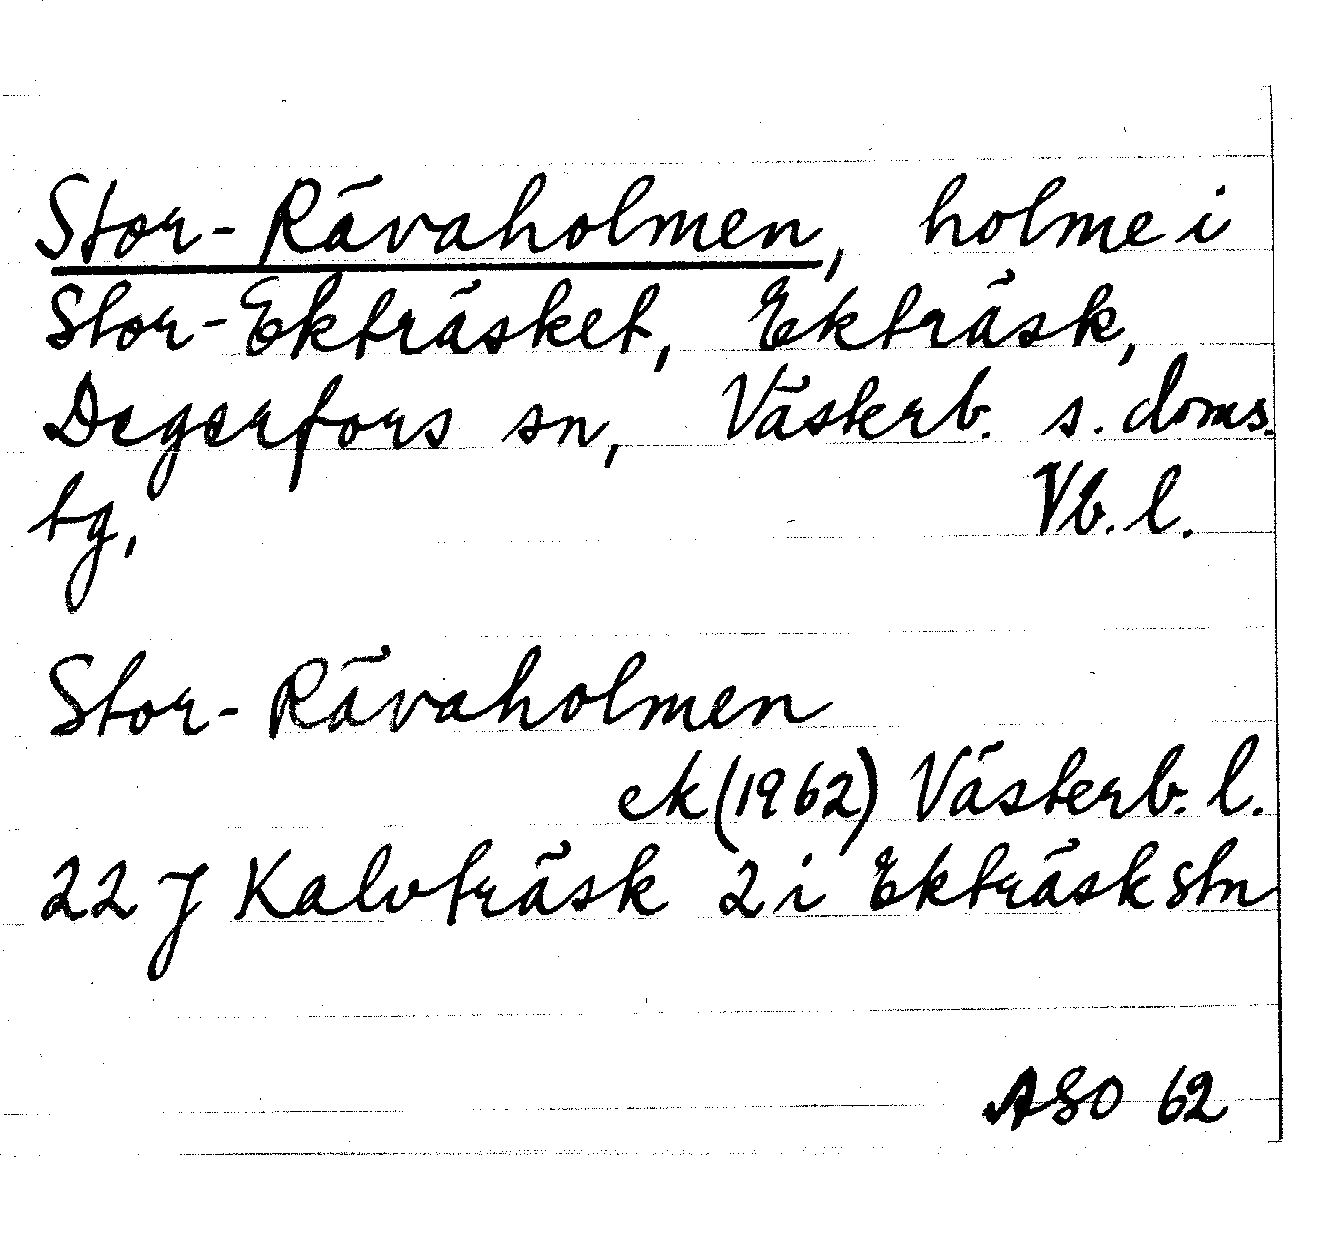 Stor-Rävaholmen, holme i
Stor-Ekträsket, Ekträsk,
Degerfors sn, Västerb. s. doms.
tg, Vb. l.
Stor-Rävaholmen
ek (1962) Västerb. l.
22 J Kalvträsk 2 i Ekträsk stn
ASO 62